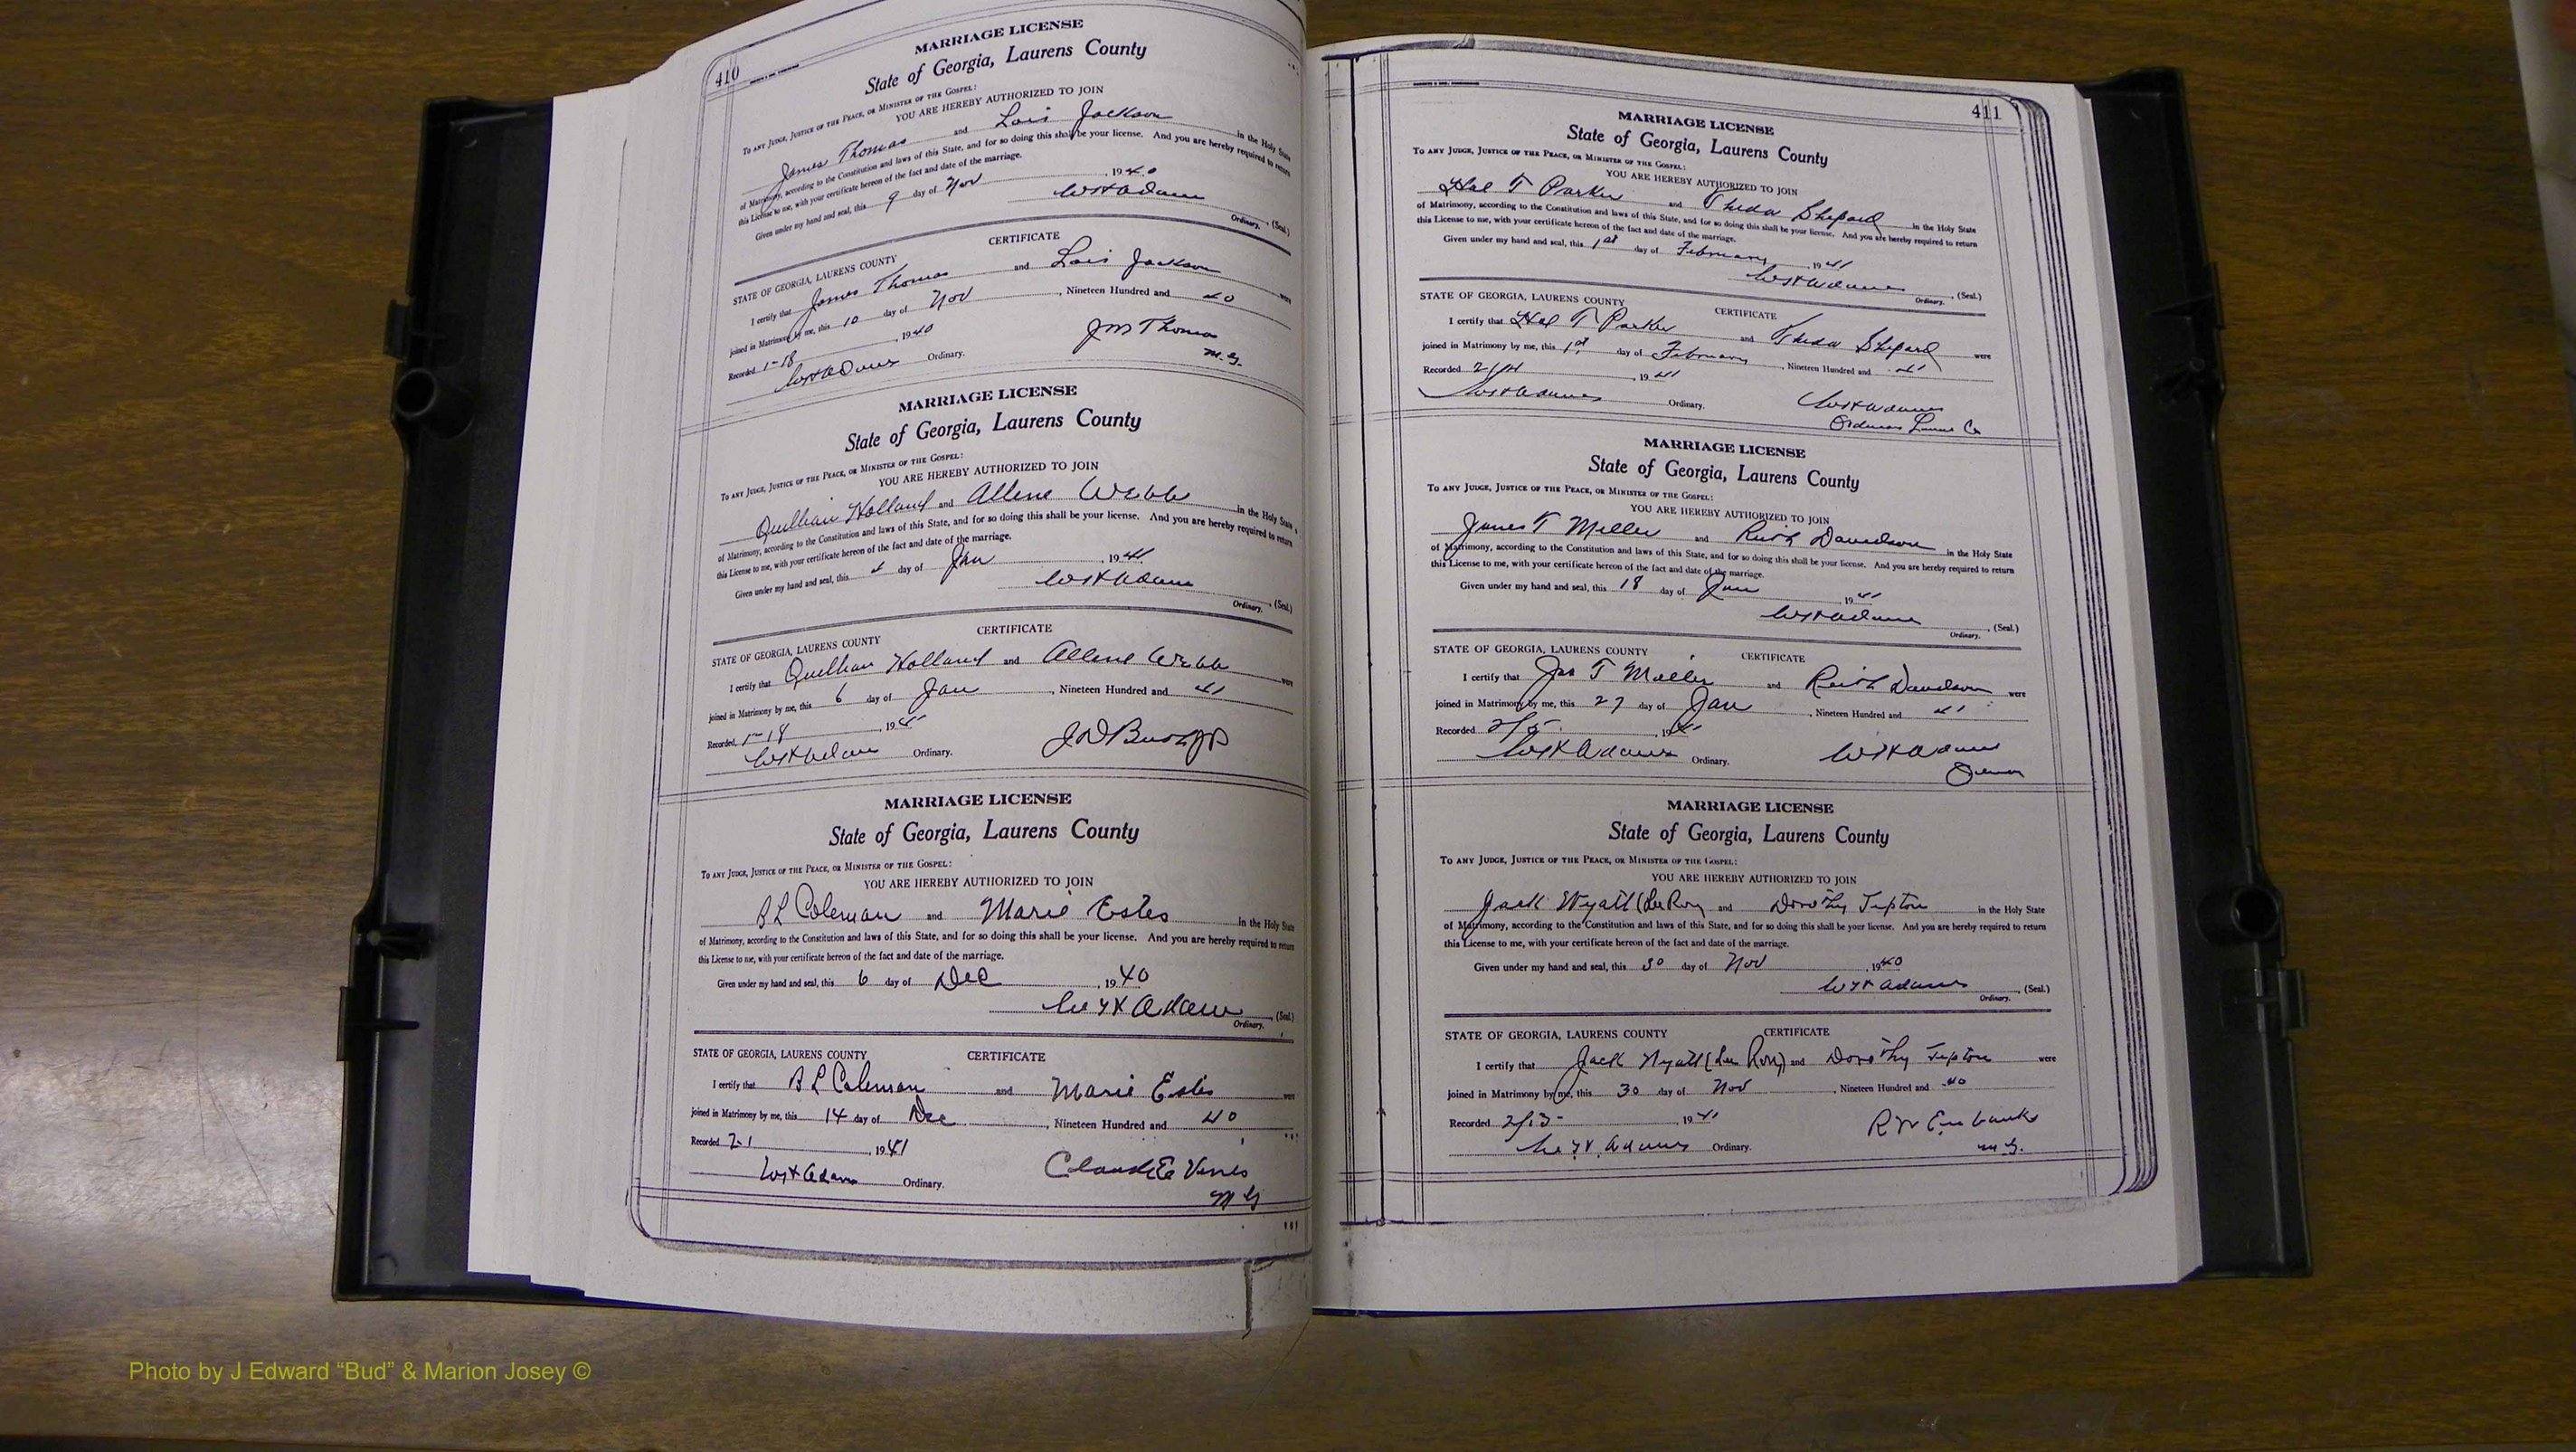 410
MARRIAGE LICENSE
State of Georgia, Laurens County
To any Judge, Justice of the Peace, or Minister of the Gospel:
YOU ARE HEREBY AUTHORIZED TO JOIN
James Thomas and Lois Jackson in the Holy State
of Matrimony, according to the Constitution and laws of this State, and for so doing this shall be your license. And you are hereby required to return
this License to me, with your certificate hereon of the fact and date of the marriage.
Given under my hand and seal, this 9 day of Nov, 1940
Adams
Ordinary. (Seal.)
CERTIFICATE
STATE OF GEORGIA, LAURENS COUNTY
I certify that James Thomas and Lois Jackson were
joined in Matrimony by me, this 10 day of Nov, Nineteen Hundred and 40
Recorded 1-18, 1940
Adams Ordinary. J M Thomas
M. G.
MARRIAGE LICENSE
State of Georgia, Laurens County
To any Judge, Justice of the Peace, or Minister of the Gospel:
YOU ARE HEREBY AUTHORIZED TO JOIN
Quillian Holland and Allene Webb in the Holy State
of Matrimony, according to the Constitution and laws of this State, and for so doing this shall be your license. And you are hereby required to return
this License to me, with your certificate hereon of the fact and date of the marriage.
Given under my hand and seal, this day of Jan, 1941
Adams
Ordinary. (Seal.)
CERTIFICATE
STATE OF GEORGIA, LAURENS COUNTY
I certify that Quillian Holland and Allene Webb were
joined in Matrimony by me, this 6 day of Jan, Nineteen Hundred and 41
Recorded 1-18, 1941
Adams Ordinary. J D
MARRIAGE LICENSE
State of Georgia, Laurens County
To any Judge, Justice of the Peace, or Minister of the Gospel:
YOU ARE HEREBY AUTHORIZED TO JOIN
Coleman and Marie Estes in the Holy State
of Matrimony, according to the Constitution and laws of this State, and for so doing this shall be your license. And you are hereby required to return
this License to me, with your certificate hereon of the fact and date of the marriage.
Given under my hand and seal, this 6 day of Dec, 1940
Adams
Ordinary. (Seal.)
STATE OF GEORGIA, LAURENS COUNTY CERTIFICATE
I certify that Coleman and Marie Estes were
joined in Matrimony by me, this 14 day of Dec, Nineteen Hundred and 40
Recorded 2-1, 1941
Adams Ordinary. Claude E Vines
M G
411
MARRIAGE LICENSE
State of Georgia, Laurens County
To any Judge, Justice of the Peace, or Minister of the Gospel:
YOU ARE HEREBY AUTHORIZED TO JOIN
Hal T Parker and Theda Shepard in the Holy State
of Matrimony, according to the Constitution and laws of this State, and for so doing this shall be your license. And you are hereby required to return
this License to me, with your certificate hereon of the fact and date of the marriage.
Given under my hand and seal, this 1st day of February, 1941
Adams
Ordinary. (Seal.)
STATE OF GEORGIA, LAURENS COUNTY CERTIFICATE
I certify that Hal T Parker and Theda Shepard were
joined in Matrimony by me, this 1st day of February, Nineteen Hundred and 41
Recorded, 1941
Adams Ordinary. Adams
Ordinary Laurens Co
MARRIAGE LICENSE
State of Georgia, Laurens County
To any Judge, Justice of the Peace, or Minister of the Gospel:
YOU ARE HEREBY AUTHORIZED TO JOIN
James T Miller and Ruth Davidson in the Holy State
of Matrimony, according to the Constitution and laws of this State, and for so doing this shall be your license. And you are hereby required to return
this License to me, with your certificate hereon of the fact and date of the marriage.
Given under my hand and seal, this 18 day of Jan, 1941
Adams
Ordinary. (Seal.)
STATE OF GEORGIA, LAURENS COUNTY CERTIFICATE
I certify that Jas T Miller and Ruth Davidson were
joined in Matrimony by me, this 27 day of Jan, Nineteen Hundred and 41
Recorded 2/5, 1941
Adams Ordinary. Adams
MARRIAGE LICENSE
State of Georgia, Laurens County
To any Judge, Justice of the Peace, or Minister of the Gospel:
YOU ARE HEREBY AUTHORIZED TO JOIN
Jack Wyatt (Lee Roy and Dorothy Tipton in the Holy State
of Matrimony, according to the Constitution and laws of this State, and for so doing this shall be your license. And you are hereby required to return
this License to me, with your certificate hereon of the fact and date of the marriage.
Given under my hand and seal, this 30 day of Nov, 1940
Adams
Ordinary. (Seal.)
STATE OF GEORGIA, LAURENS COUNTY CERTIFICATE
I certify that Jack Wyatt (Lee Roy) and Dorothy Tipton were
joined in Matrimony by me, this 30 day of Nov, Nineteen Hundred and 40
Recorded, 1941
Adams Ordinary. R W Eubanks
M. G.
Photo by J Edward “Bud” & Marion Josey ©